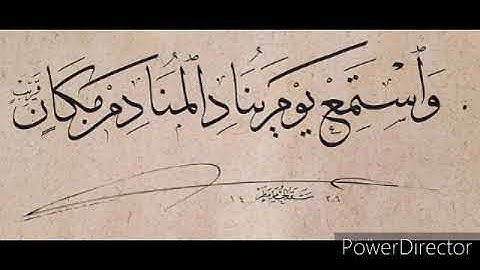 وَٱسْتَمِعْ يَوْمَ يُنَادِ الْمُنَادِ مِنْ مَكَانٍ قَرِيبٍ
PowerDirector